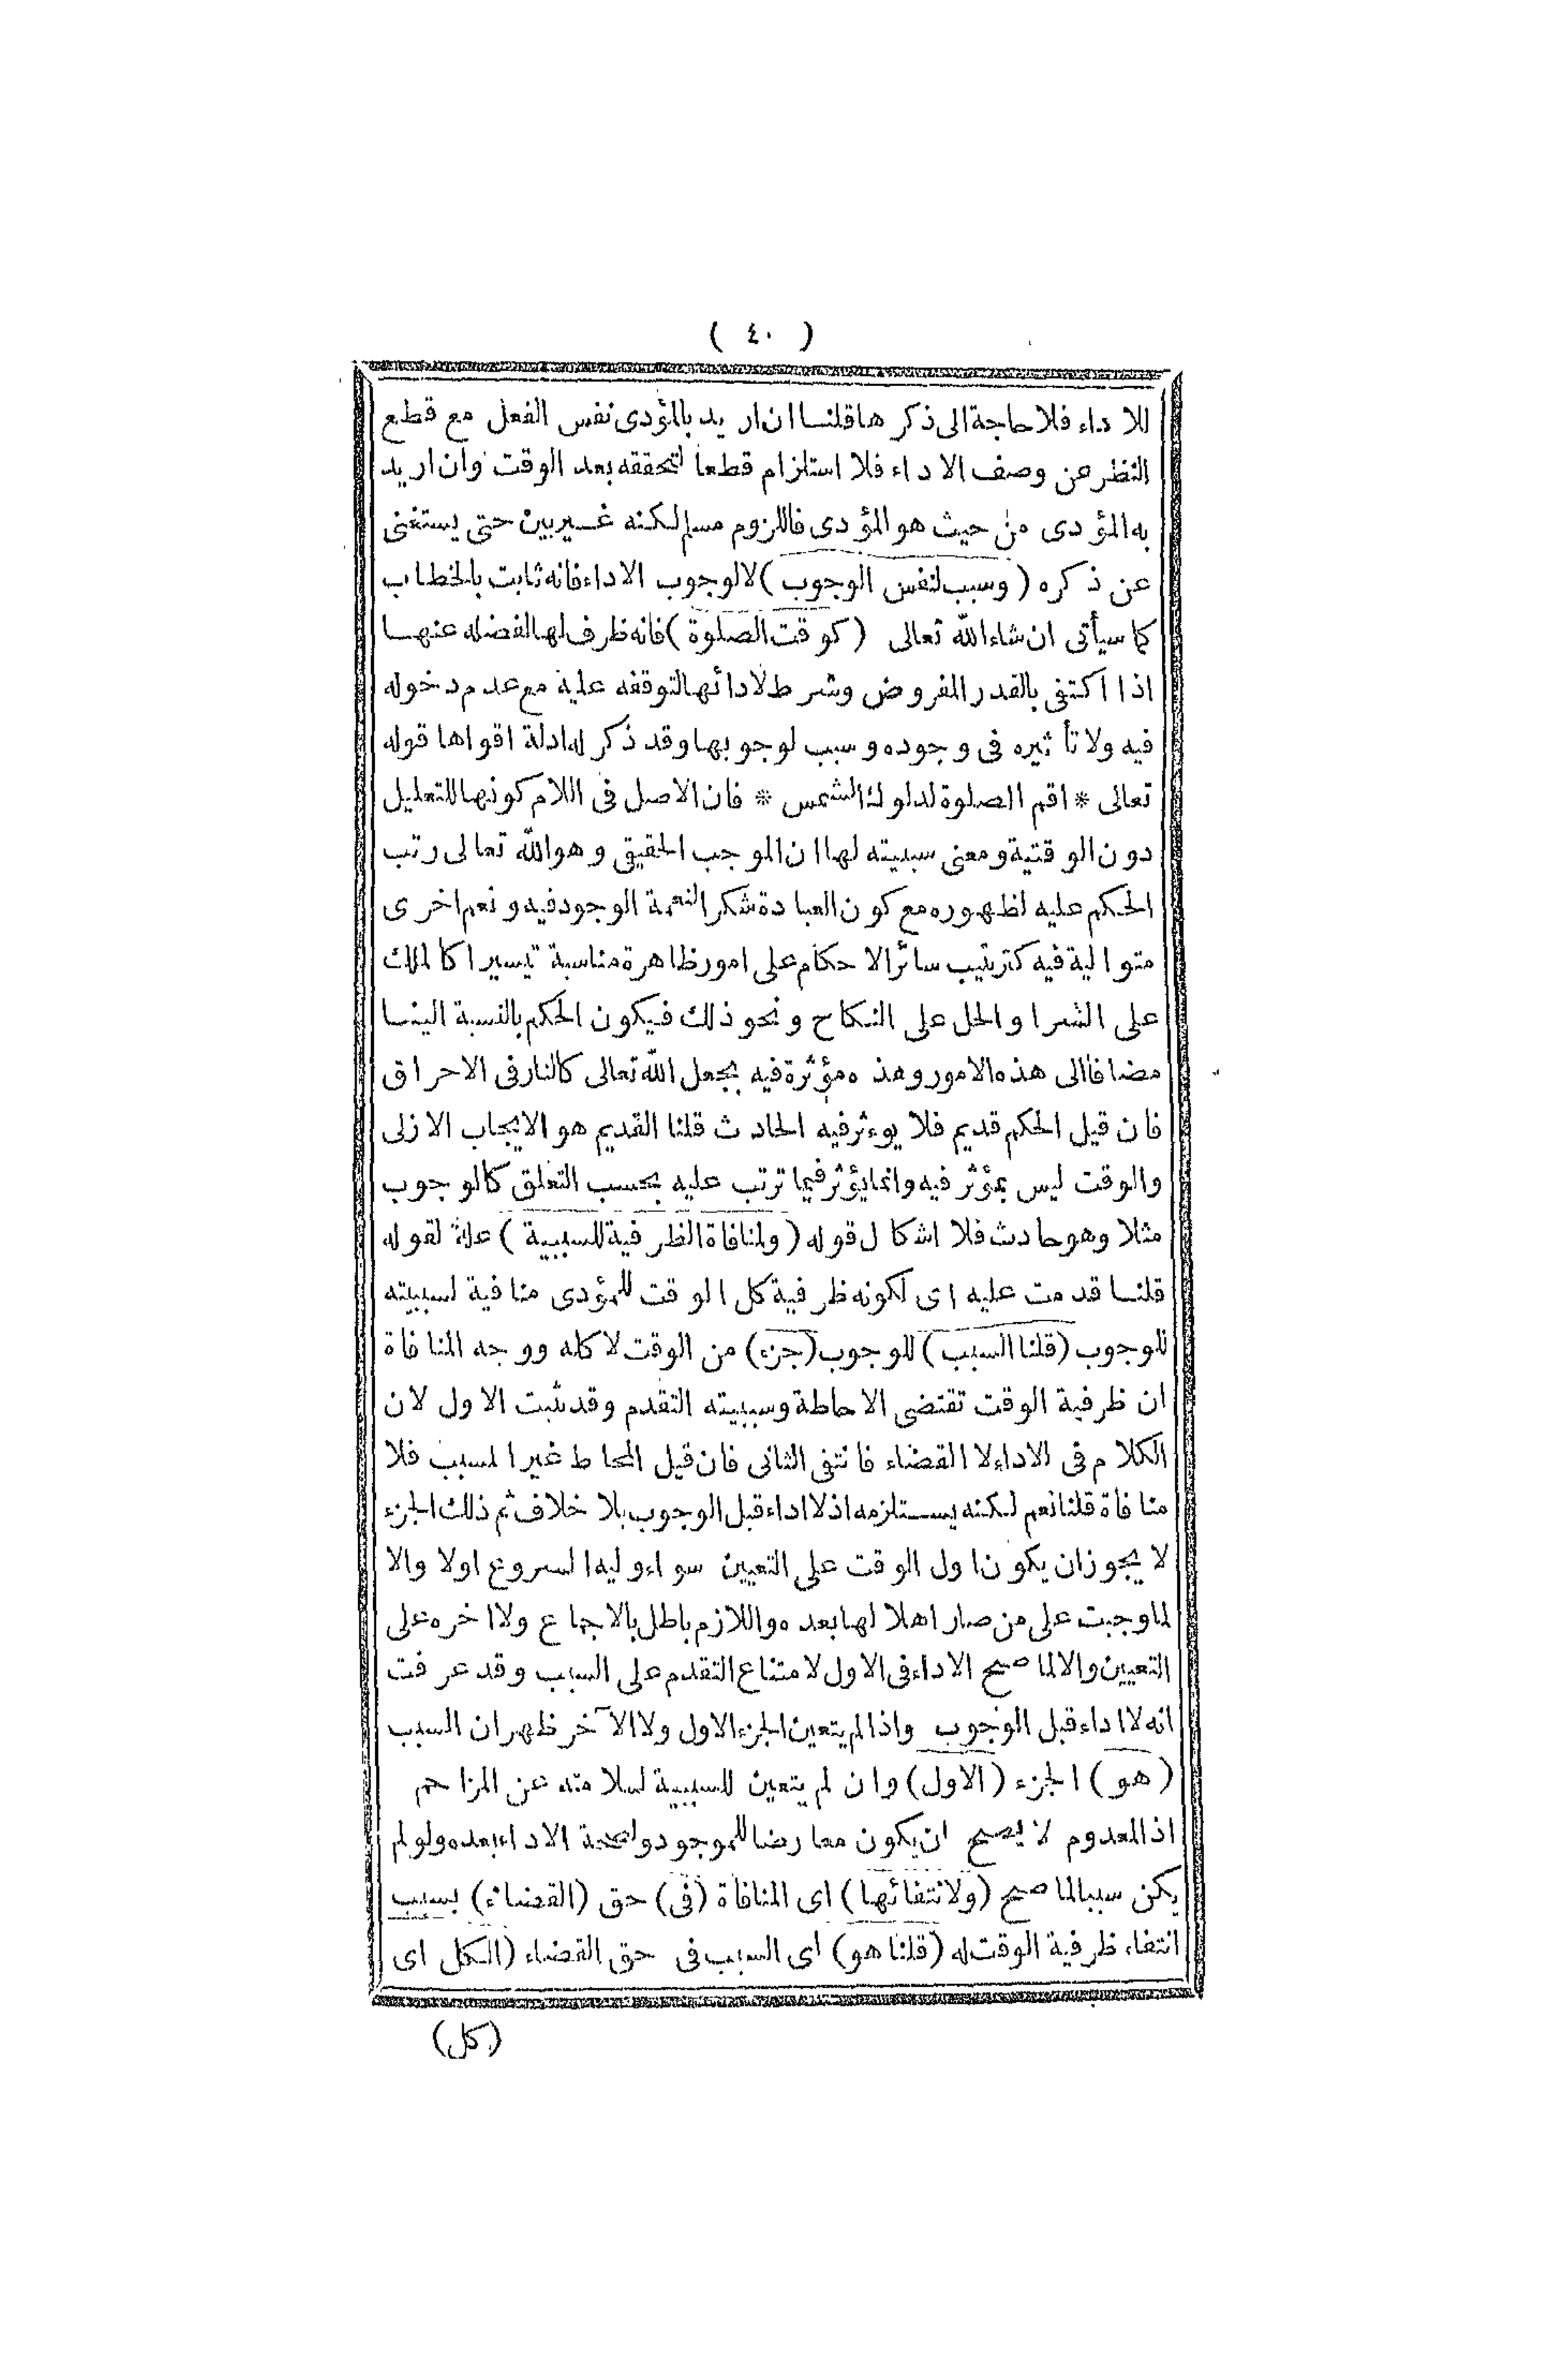 ( ٤٠ )
للاداء فلا حاجة الى ذكرها قلنا ان اريد بالمؤدى نفس الفعل مع قطع
النظر عن وصف الاداء فلا استلزام قطعا لتحققه بعد الوقت وان اريد
به المؤدى من حيث هو المؤدى فاللزوم مسلم لكنه غير بين حتى يستغنى
عن ذكره ( وسبب لنفس الوجوب ) لا لوجوب الاداء فانه ثابت بالخطاب
كما سيأتى ان شاء الله تعالى ( كوقت الصلوة ) فانه ظرف لها لفضله عنها
اذا اكتفى بالقدر المفروض وشرط لادائها لتوقفه عليه مع عدم دخوله
فيه ولا تأثيره فى وجوده وسبب لوجوبها وقد ذكر له ادلة اقواها قوله
تعالى * اقم الصلوة لدلوك الشمس * فان الاصل فى اللام كونها للتعليل
دون الوقتية ومعنى سببيته لها ان الموجب الحقيقى وهو الله تعالى رتب
الحكم عليه لظهوره مع كون العبادة شكر النعمة الوجود فيه ونعم اخرى
متوالية فيه كترتيب سائر الاحكام على امور ظاهرة مناسبة تيسيرا كالملك
على الشرا والحل على النكاح ونحو ذلك فيكون الحكم بالنسبة الينا
مضافا الى هذه الامور وهذه مؤثرة فيه بجعل الله تعالى كالنار فى الاحراق
فان قيل الحكم قديم فلا يوءثر فيه الحادث قلنا القديم هو الايجاب الازلى
والوقت ليس بمؤثر فيه وانما يؤثر فيما ترتب عليه بحسب التعلق كالوجوب
مثلا وهو حادث فلا اشكال قوله ( ولمنافاة الظرفية للسببية ) علة لقوله
قلنا قدمت عليه اى لكونه ظرفية كل الوقت للمؤدى منافية لسببيته
للوجوب ( قلنا السبب ) للوجوب ( جزء ) من الوقت لا كله ووجه المنافاة
ان ظرفية الوقت تقتضى الاحاطة وسببيته التقدم وقد ثبت الاول لان
الكلام فى الاداء لا القضاء فانتفى الثانى فان قيل المحاط غير المسبب فلا
منافاة قلنا نعم لكنه يستلزمه اذ لا اداء قبل الوجوب بلا خلاف ثم ذلك الجزء
لا يجوز ان يكون اول الوقت على التعيين سواء وليه الشروع اولا والا
لما وجبت على من صار اهلا لها بعده واللازم باطل بالاجماع ولا اخره على
التعيين والا لما صح الاداء فى الاول لامتناع التقدم على السبب وقد عرفت
انه لا اداء قبل الوجوب واذا لم يتعين الجزء الاول ولا الآخر ظهر ان السبب
( هو ) الجزء ( الاول ) وان لم يتعين للسببية لسلامته عن المزاحم
اذ المعدوم لا يصح ان يكون معارضا للموجود ولصحة الاداء بعده ولو لم
يكن سببا لما صح ( ولانتفائها ) اى المنافاة ( فى ) حق ( القضاء ) بسبب
انتفاء ظرفية الوقت له ( قلنا هو ) اى السبب فى حق القضاء ( الكل اى
( كل )